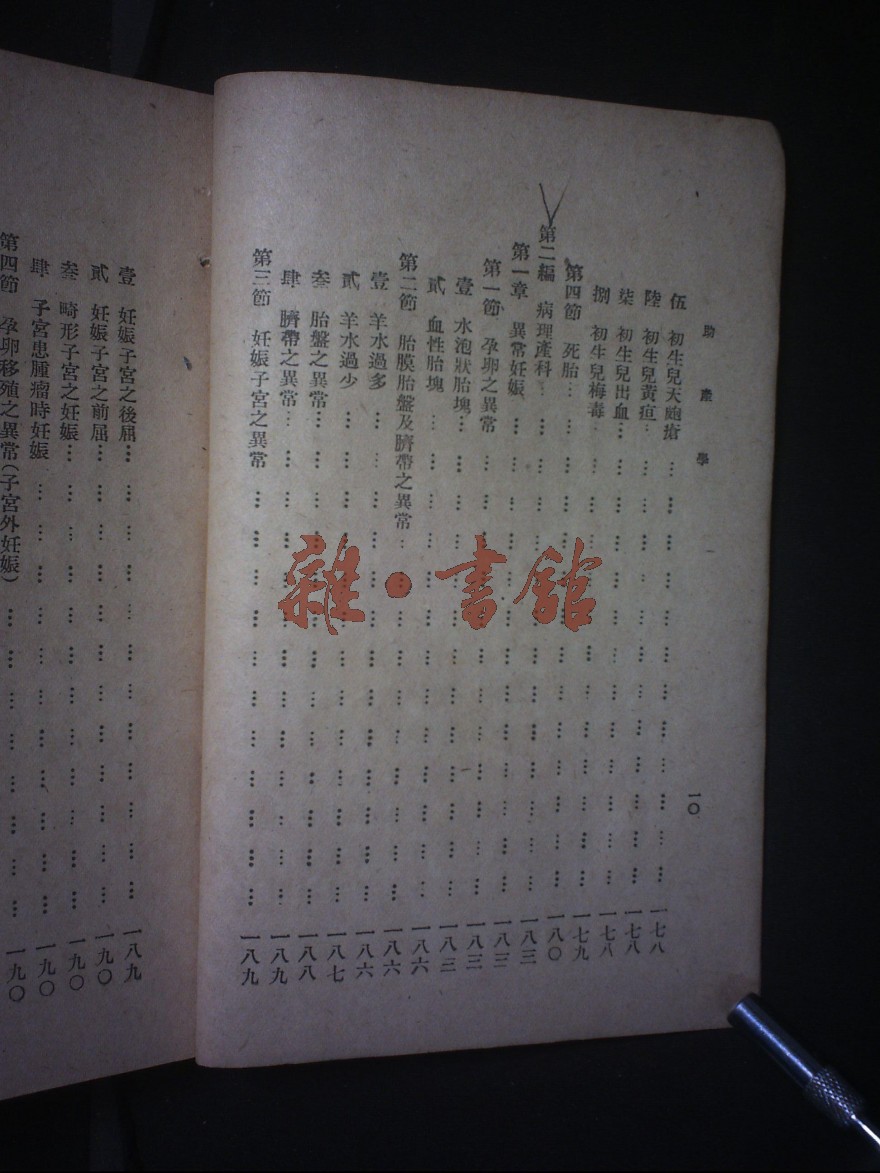 助產學
一〇
伍 初生兒天疱瘡 … 一七八
陸 初生兒黃疸 … 一七八
柒 初生兒出血 … 一七八
捌 初生兒梅毒 … 一七九
第四節 死胎 … 一八〇
第二編 病理產科 … 一八三
第一章 異常妊娠 … 一八三
第一節 孕卵之異常 … 一八三
壹 水泡狀胎塊 … 一八三
貳 血性胎塊 … 一八六
第二節 胎膜胎盤及臍帶之異常 … 一八六
壹 羊水過多 … 一八六
貳 羊水過少 … 一八七
叁 胎盤之異常 … 一八八
肆 臍帶之異常 … 一八九
第三節 妊娠子宮之異常 … 一八九
壹 妊娠子宮之後屈 … 一八九
貳 妊娠子宮之前屈 … 一九〇
叁 畸形子宮之妊娠 … 一九〇
肆 子宮患腫瘤時妊娠 … 一九〇
第四節 孕卵移殖之異常(子宮外妊娠) … 一九〇
雜·書館